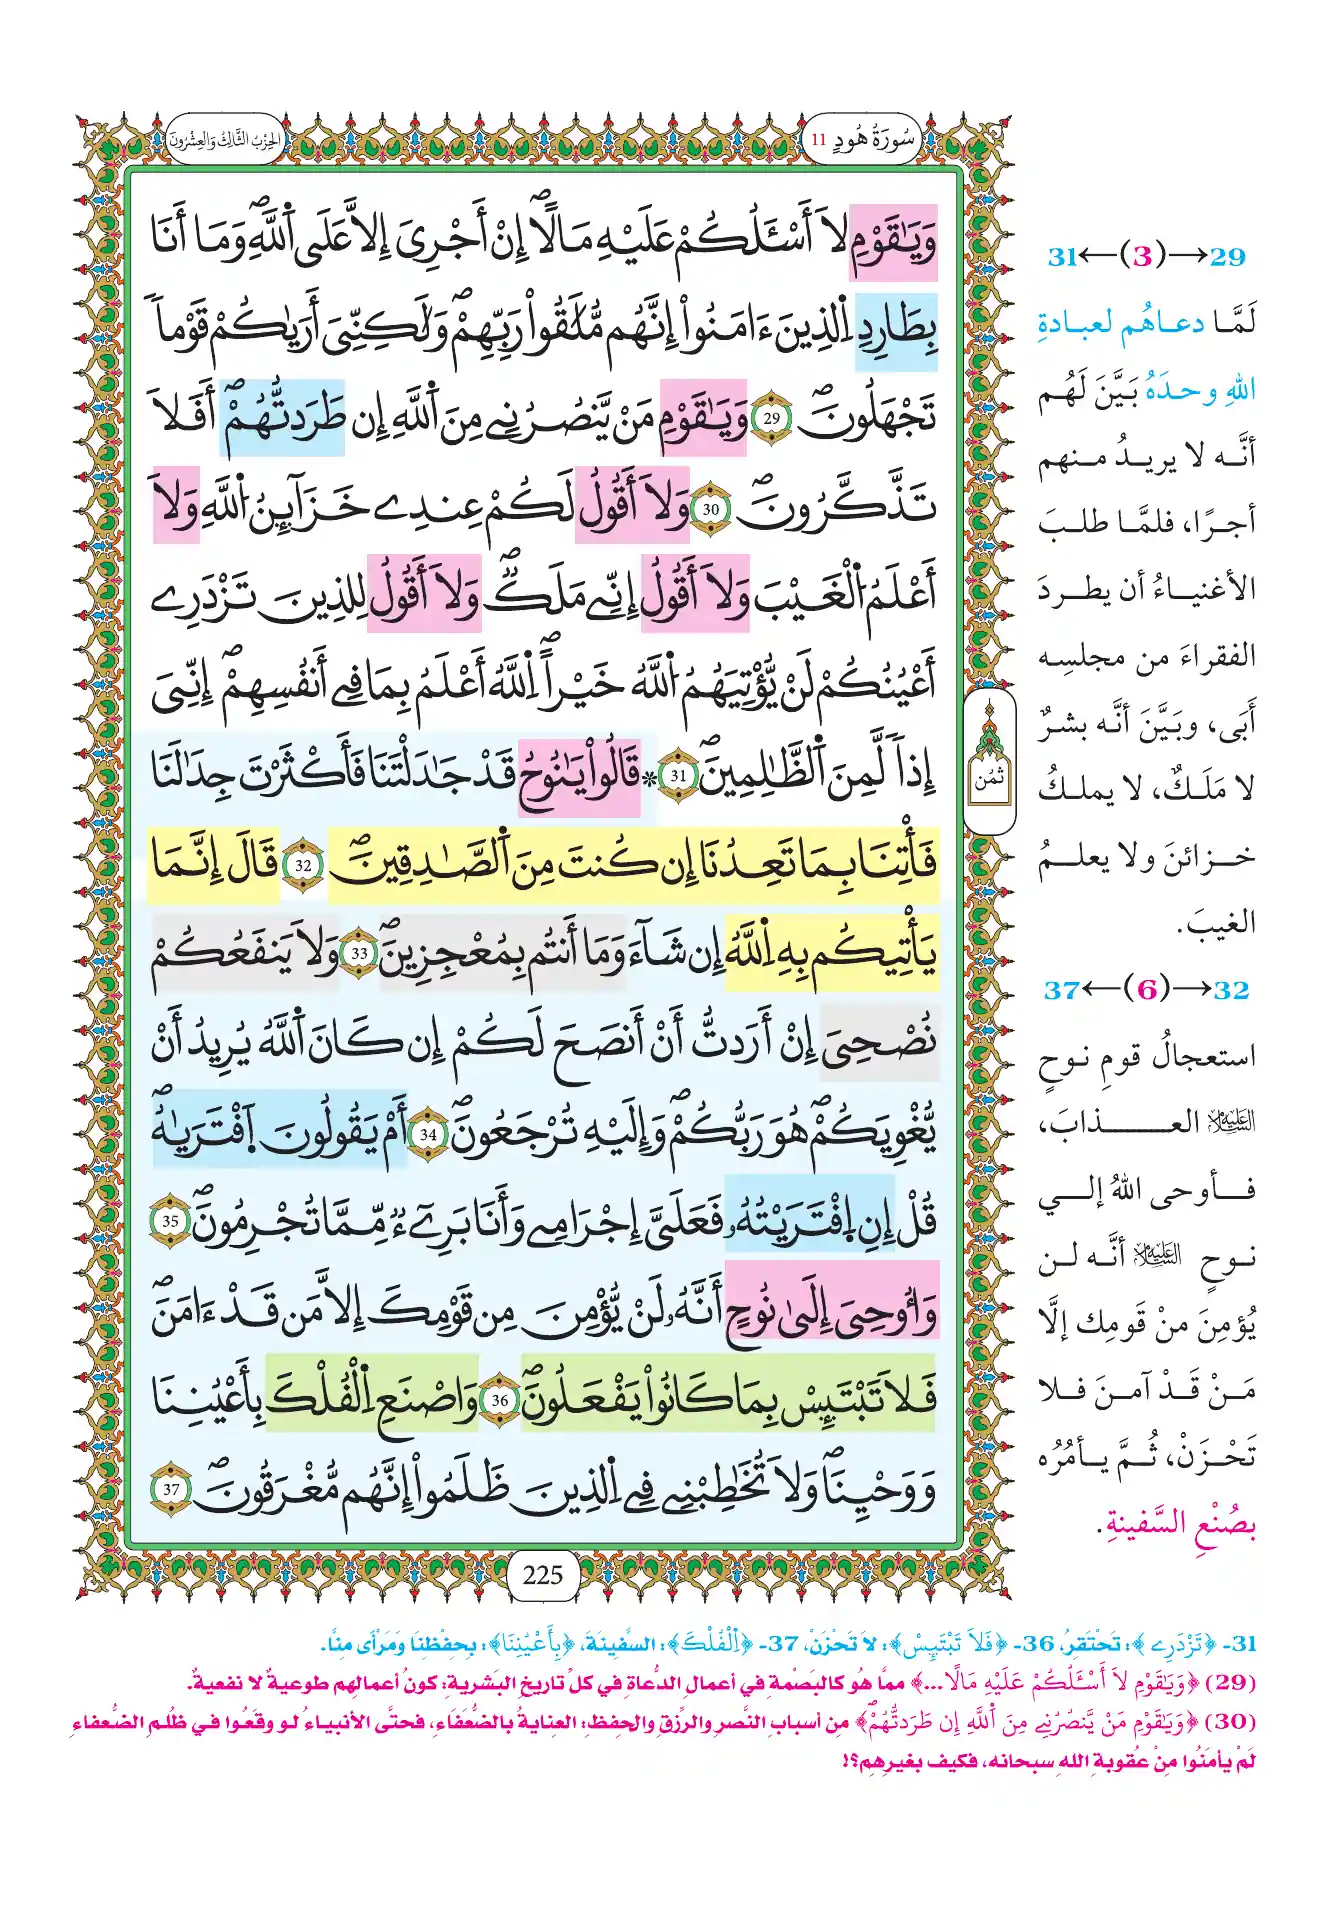 سُورَةُ هُودٍ 11
الحِزْبُ الثَّالِثُ وَالعِشْرُونَ
وَيَٰقَوْمِ لَا أَسْـَٔلُكُمْ عَلَيْهِ مَالًاۖ إِنْ أَجْرِىَ إِلَّا عَلَى اَ۬للَّهِۖ وَمَا أَنَا
بِطَارِدِ اِ۬لذِينَ ءَامَنُواْۖ إِنَّهُم مُّلَٰقُواْ رَبِّهِمْۖ وَلَٰكِنِّىَ أَر۪يٰكُمْ قَوْماٗ
تَجْهَلُونَۖ 29 وَيَٰقَوْمِ مَنْ يَّنصُرُنِے مِنَ اَ۬للَّهِ إِن طَرَدتُّهُمْۖ أَفَلَا
تَذَّكَّرُونَۖ 30 وَلَا أَقُولُ لَكُمْ عِندِے خَزَآئِنُ اُ۬للَّهِ وَلَا
أَعْلَمُ اُ۬لْغَيْبَ وَلَا أَقُولُ إِنِّے مَلَكٞۖ وَلَا أَقُولُ لِلذِينَ تَزْدَرِے
أَعْيُنُكُمْ لَنْ يُّؤْتِيَهُمُ اُ۬للَّهُ خَيْراًۖ اِ۬للَّهُ أَعْلَمُ بِمَا فِے أَنفُسِهِمْۖ إِنِّىَ
إِذاٗ لَّمِنَ اَ۬لظَّٰلِمِينَۖ 31 ۞ قَالُواْ يَٰنُوحُ قَدْ جَٰدَلْتَنَا فَأَكْثَرْتَ جِدَٰلَنَا
فَأْتِنَا بِمَا تَعِدُنَا إِن كُنتَ مِنَ اَ۬لصَّٰدِقِينَۖ 32 قَالَ إِنَّمَا
يَأْتِيكُم بِهِ اِ۬للَّهُ إِن شَآءَ وَمَا أَنتُم بِمُعْجِزِينَۖ 33 وَلَا يَنفَعُكُمْ
نُصْحِىَ إِنْ أَرَدتُّ أَنْ أَنصَحَ لَكُمْ إِن كَانَ اَ۬للَّهُ يُرِيدُ أَنْ
يُّغْوِيَكُمْۖ هُوَ رَبُّكُمْۖ وَإِلَيْهِ تُرْجَعُونَۖ 34 أَمْ يَقُولُونَ اَ۪فْتَر۪يٰهُۖ
قُلْ إِنِ اِ۪فْتَرَيْتُهُۥ فَعَلَىَّ إِجْرَامِے وَأَنَا بَرِےٓءٞ مِّمَّا تُجْرِمُونَۖ 35
وَأُوحِىَ إِلَىٰ نُوحٍ أَنَّهُۥ لَنْ يُّؤْمِنَ مِن قَوْمِكَ إِلَّا مَن قَدَ ءَامَنَۖ
فَلَا تَبْتَئِسْ بِمَا كَانُواْ يَفْعَلُونَۖ 36 وَاصْنَعِ اِ۬لْفُلْكَ بِأَعْيُنِنَا
وَوَحْيِنَاۖ وَلَا تُخَٰطِبْنِے فِے اِ۬لذِينَ ظَلَمُواْ إِنَّهُم مُّغْرَقُونَۖ 37
ثُمُن
225
29→(3)←31
لَمَّا دعاهُم لعبادةِ
اللهِ وحدَهُ بَيَّنَ لَهُم
أنَّه لا يريدُ منهم
أجرًا، فلمَّا طلبَ
الأغنياءُ أن يطردَ
الفقراءَ من مجلسِه
أَبَى، وبَيَّنَ أنَّه بشرٌ
لا مَلَكٌ، لا يملكُ
خزائنَ ولا يعلمُ
الغيبَ.
32→(6)←37
استعجالُ قومِ نوحٍ
عليه السلام العذابَ،
فأوحى اللهُ إلي
نوحٍ عليه السلام أنَّه لن
يُؤمِنَ منْ قَومِك إلَّا
مَنْ قَدْ آمنَ فلا
تَحْزَنْ، ثُمَّ يأمُرُه
بصُنْعِ السَّفينةِ.
31- ﴿تَزْدَرِے﴾: تَحْتَقِرُ، 36- ﴿فَلَا تَبْتَئِسْ﴾: لا تَحْزَنْ، 37- ﴿اِ۬لْفُلْكَ﴾: السَّفِينَةَ، ﴿بِأَعْيُنِنَا﴾: بِحِفْظِنَا وَمَرْأَى مِنَّا.
(29) ﴿وَيَٰقَوْمِ لَا أَسْـَٔلُكُمْ عَلَيْهِ مَالًا...﴾ ممَّا هُو كالبَصْمةِ في أعمالِ الدُّعاةِ في كلِّ تاريخِ البَشريةِ: كونُ أعمالِهم طوعيةً لا نفعيةً.
(30) ﴿وَيَٰقَوْمِ مَنْ يَّنصُرُنِے مِنَ اَ۬للَّهِ إِن طَرَدتُّهُمْۖ﴾ من أسبابِ النَّصرِ والرِّزقِ والحِفظِ: العنايةُ بالضُّعَفَاءِ، فحتَّى الأنبياءُ لو وقَعُوا في ظُلمِ الضُّعفاءِ
لَمْ يأمَنُوا مِنْ عُقوبةِ اللهِ سبحانه، فكيف بغيرِهِم؟!